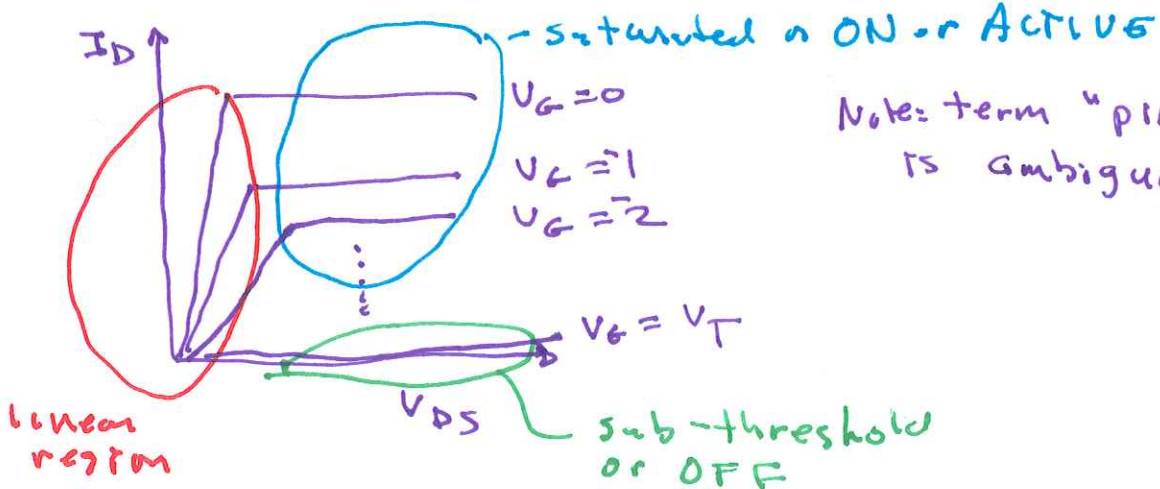 I_D
saturated or ON or ACTIVE
V_G = 0
Note: term "pi
is ambigu
V_G = -1
V_G = -2
V_G = V_T
V_DS
linear
region
sub-threshold
or OFF